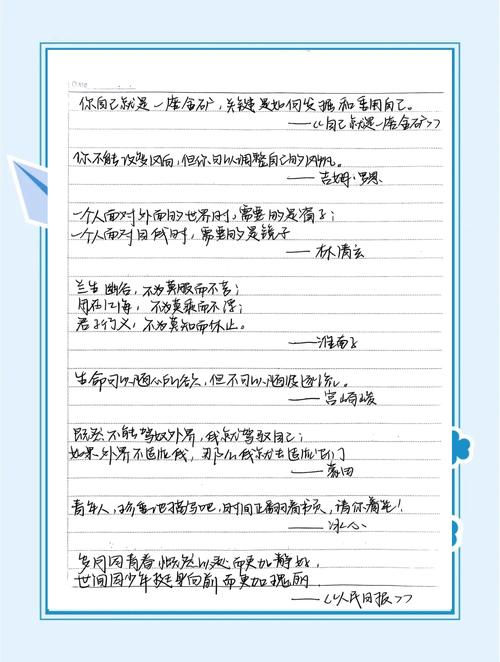 你自己就是一座金矿，关键是如何发掘和重用自己。
——《自己就是一座金矿》
你不能改变风向，但你可以调整自己的风帆。
——吉姆·罗恩
一个人面对外面的世界时，需要的是窗子；
一个人面对自我时，需要的是镜子
——林清玄
兰生幽谷，不为莫服而不芳；
舟在江海，不为莫乘而不浮；
君子行义，不为莫知而休止。
——淮南子
生命可以随心所欲，但不可以随波逐流。
——宫崎骏
既然不能驾驭外界，我就驾驭自己；
如果外界不适应我，那么我就去适应它们
——蒙田
青年人，珍重地描写吧，时间正翻着书页，请你着笔！
——冰心
岁月因青春慨然以赴而更加静好，
世间因少年挺身向前而更加瑰丽。
——《人民日报》